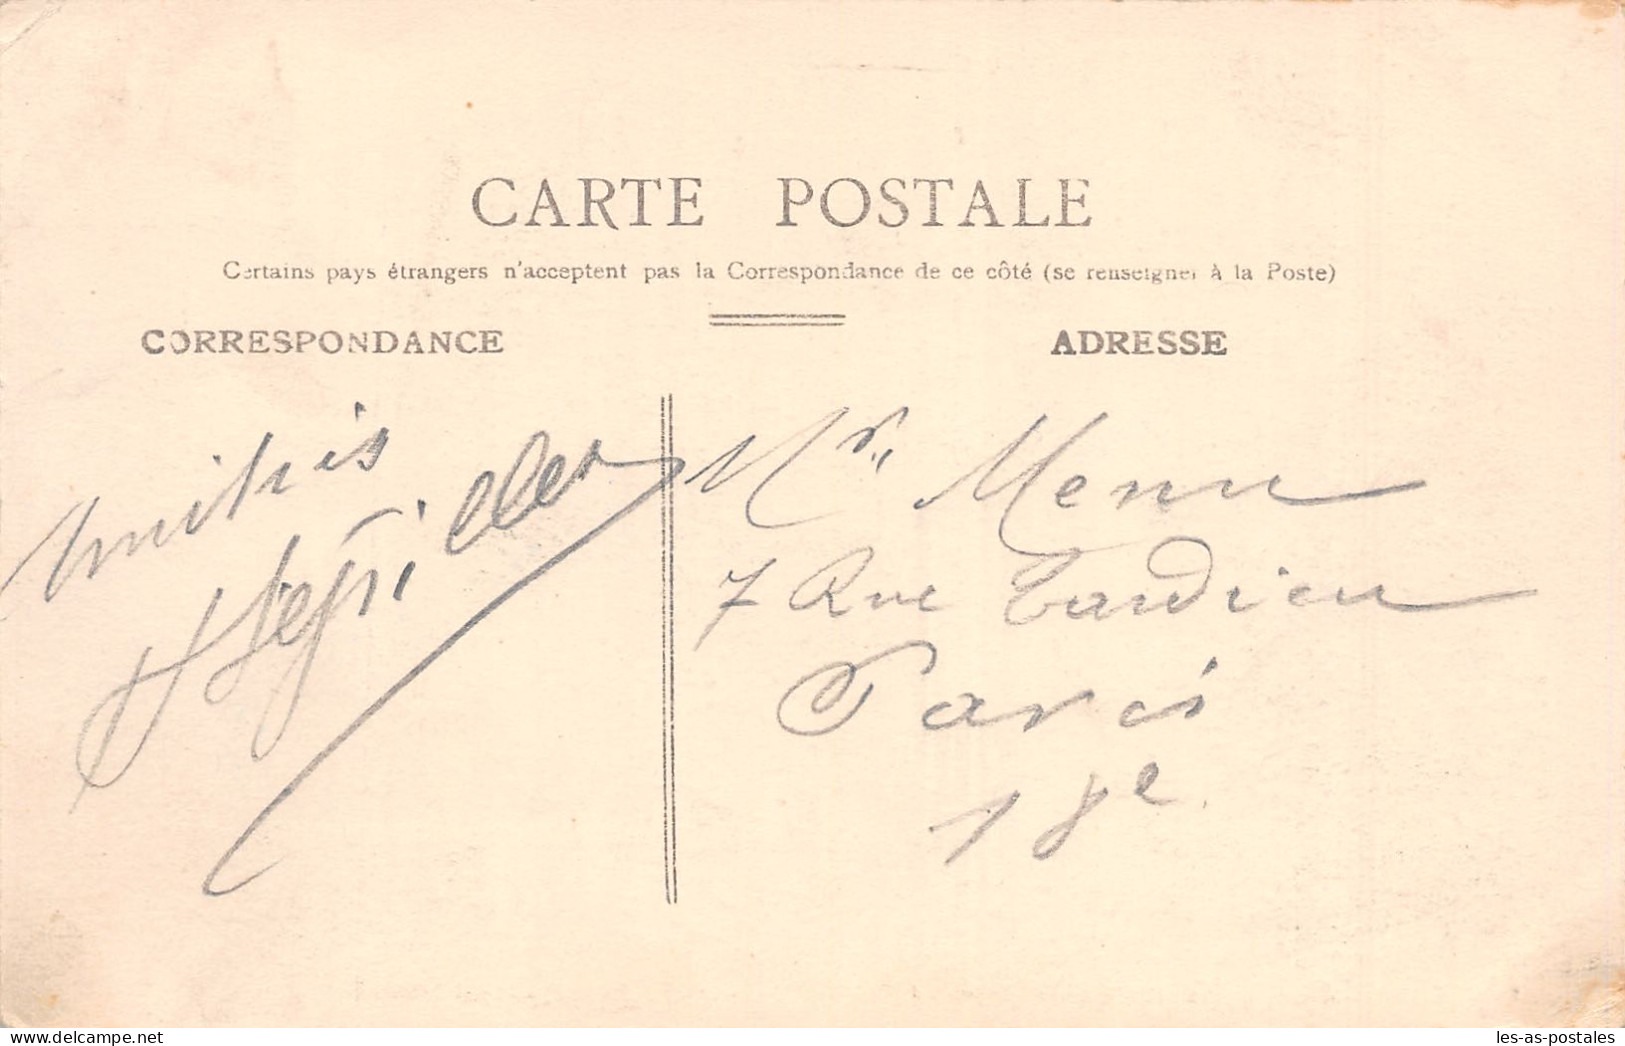 CARTE POSTALE
Certains pays étrangers n'acceptent pas la Correspondance de ce côté (se renseigner à la Poste)
CORRESPONDANCE
ADRESSE
Amitiés
Mr. Menu
7 Rue Tardieu
Paris
18e
www.delcampe.net
les-as-postales